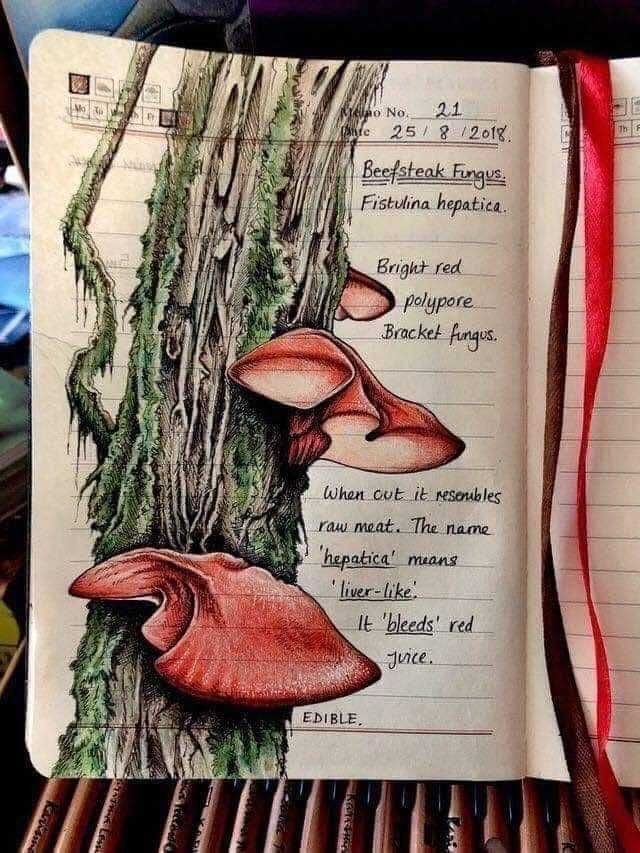 Mo Tu Th Fr
Memo No. 21
Date 25 / 8 / 2018.
Beefsteak Fungus.
Fistulina hepatica.
Bright red
polypore
Bracket fungus.
When cut it resembles
raw meat. The name
'hepatica' means
'liver-like'.
It 'bleeds' red
juice.
EDIBLE.
Th